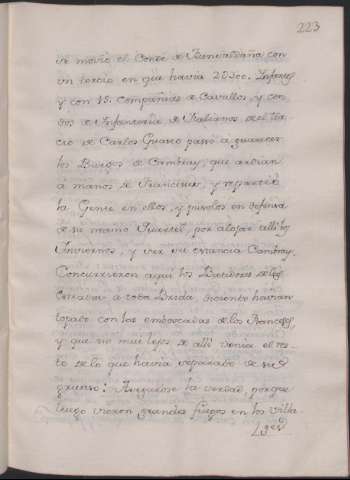 223
se movio el Conde de Fuensaldaña con
un tercio en que havia 2Dᵒˢ. Infantes
y con 15. compañias de Cavallos, y con
dos de Infanteria de Italianos del ter-
cio de Carlos Guasco passó á guarecer
los Burgos de Cambray, que ardian
á manos de Franceses, y repartió
la Gente en ellos, y pusolos en defensa
de su mano Quartel, por alojar alli los
Inviernos, y ver su estancia Cambray.
Concurrieron aqui los Batidores de los
Corrian a toda Brida, diciendo havian
topado con las emboscadas de los Franceses,
y que no muy lejos de alli venia el res-
to de lo que havia separado de su
gruesso: Juzgaron la verdad, porque
luego vieron grandes fuegos en los villa-
ges